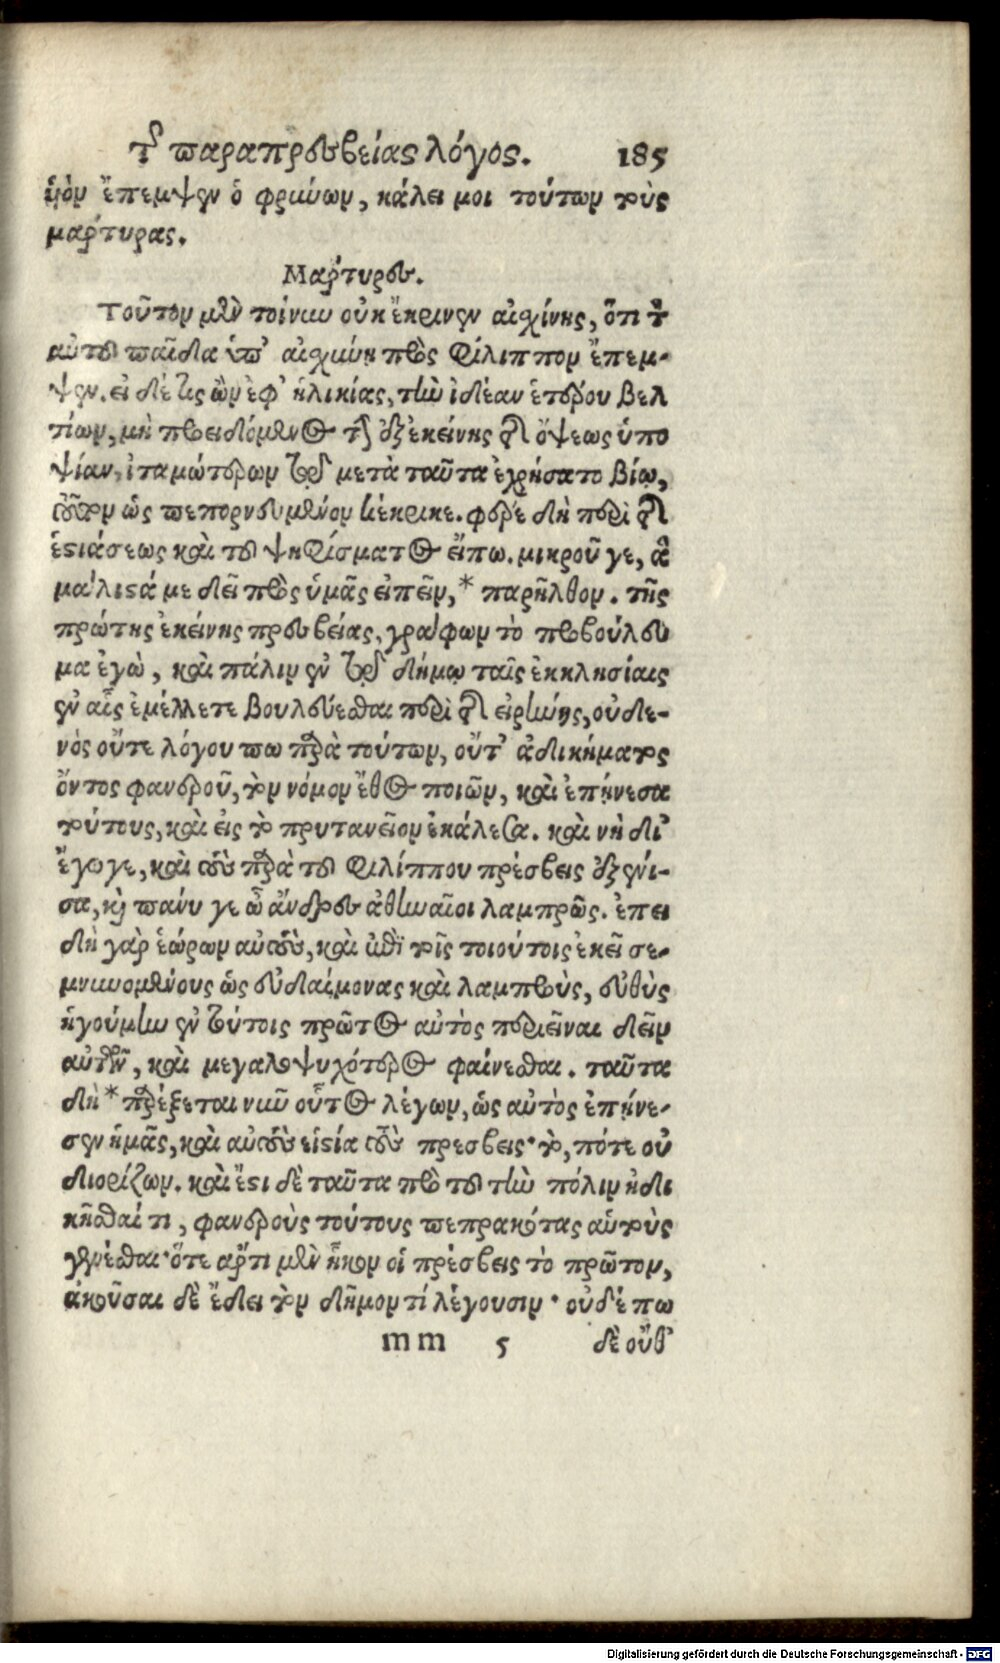 τῆς παραπρεσβείας λόγος. 185
ὑὸν ἔπεμψεν ὁ φρύνων, κάλει μοι τούτων τοὺς
μάρτυρας.
Μάρτυρες.
Τοῦτον μὲν τοίνυν οὐκ ἔκρινεν αἰσχίνης, ὅτι τὸν
αὑτοῦ παῖδα ἐπ' αἰσχύνῃ πρὸς Φίλιππον ἔπεμ-
ψεν. εἰ δέ τις ὢν ἐφ' ἡλικίας, τὴν ἰδέαν ἑτέρου βελ
τίων, μὴ προειδόμενος τὴν ἐξ ἐκείνης τῆς ὄψεως ὑπο
ψίαν, ἰταμώτερον τῷ μετὰ ταῦτα ἐχρήσατο βίῳ,
τοῦτον ὡς πεπορνευμένον κέκρικε. φέρε δὴ περὶ τῆς
ἑστιάσεως καὶ τοῦ ψηφίσματος εἴπω. μικροῦ γε, ἃ
μάλιστά με δεῖ πρὸς ὑμᾶς εἰπεῖν,* παρῆλθον. τῆς
πρώτης ἐκείνης πρεσβείας, γράφων τὸ προβούλευ
μα ἐγὼ, καὶ πάλιν ἐν τῷ δήμῳ ταῖς ἐκκλησίαις
ἐν αἷς ἐμέλλετε βουλεύεσθαι περὶ τῆς εἰρήνης, οὐδε-
νὸς οὔτε λόγου πω παρὰ τούτων, οὔτ' ἀδικήματος
ὄντος φανεροῦ, τὸν νόμον ἔθος ποιῶν, καὶ ἐπῄνεσα
τούτους, καὶ εἰς τὸ πρυτανεῖον ἐκάλεσα. καὶ νὴ δί'
ἔγωγε, καὶ τοὺς παρὰ τοῦ Φιλίππου πρέσβεις ἐξένι-
σα, καὶ πάνυ γε ὦ ἄνδρες ἀθηναῖοι λαμπρῶς. ἐπει
δὴ γὰρ ἑώρων αὐτοὺς, καὶ ἐπὶ τοῖς τοιούτοις ἐκεῖ σε-
μνυνομένους ὡς εὐδαίμονας καὶ λαμπροὺς, εὐθὺς
ἡγούμην ἐν τούτοις πρῶτος αὐτὸς περιεῖναι δεῖν
αὐτῶν, καὶ μεγαλοψυχότερος φαίνεσθαι. ταῦτα
δὴ* παρέξεται νῦν οὗτος λέγων, ὡς αὐτὸς ἐπῄνε-
σεν ἡμᾶς, καὶ αὐτοὺς εἱστία τοὺς πρέσβεις· τὸ, πότε οὐ
διορίζων. καὶ ἔστι δὲ ταῦτα πρὸ τοῦ τὴν πόλιν ἠδι
κῆσθαί τι, φανεροὺς τούτους πεπρακότας αὑτοὺς
γενέσθαι· ὅτε ἄρτι μὲν ἧκον οἱ πρέσβεις τὸ πρῶτον,
ἀκοῦσαι δὲ ἔδει τὸν δῆμον τί λέγουσιν· οὐδέπω
mm 5 δὲ οὔθ'
Digitalisierung gefördert durch die Deutsche Forschungsgemeinschaft - DFG